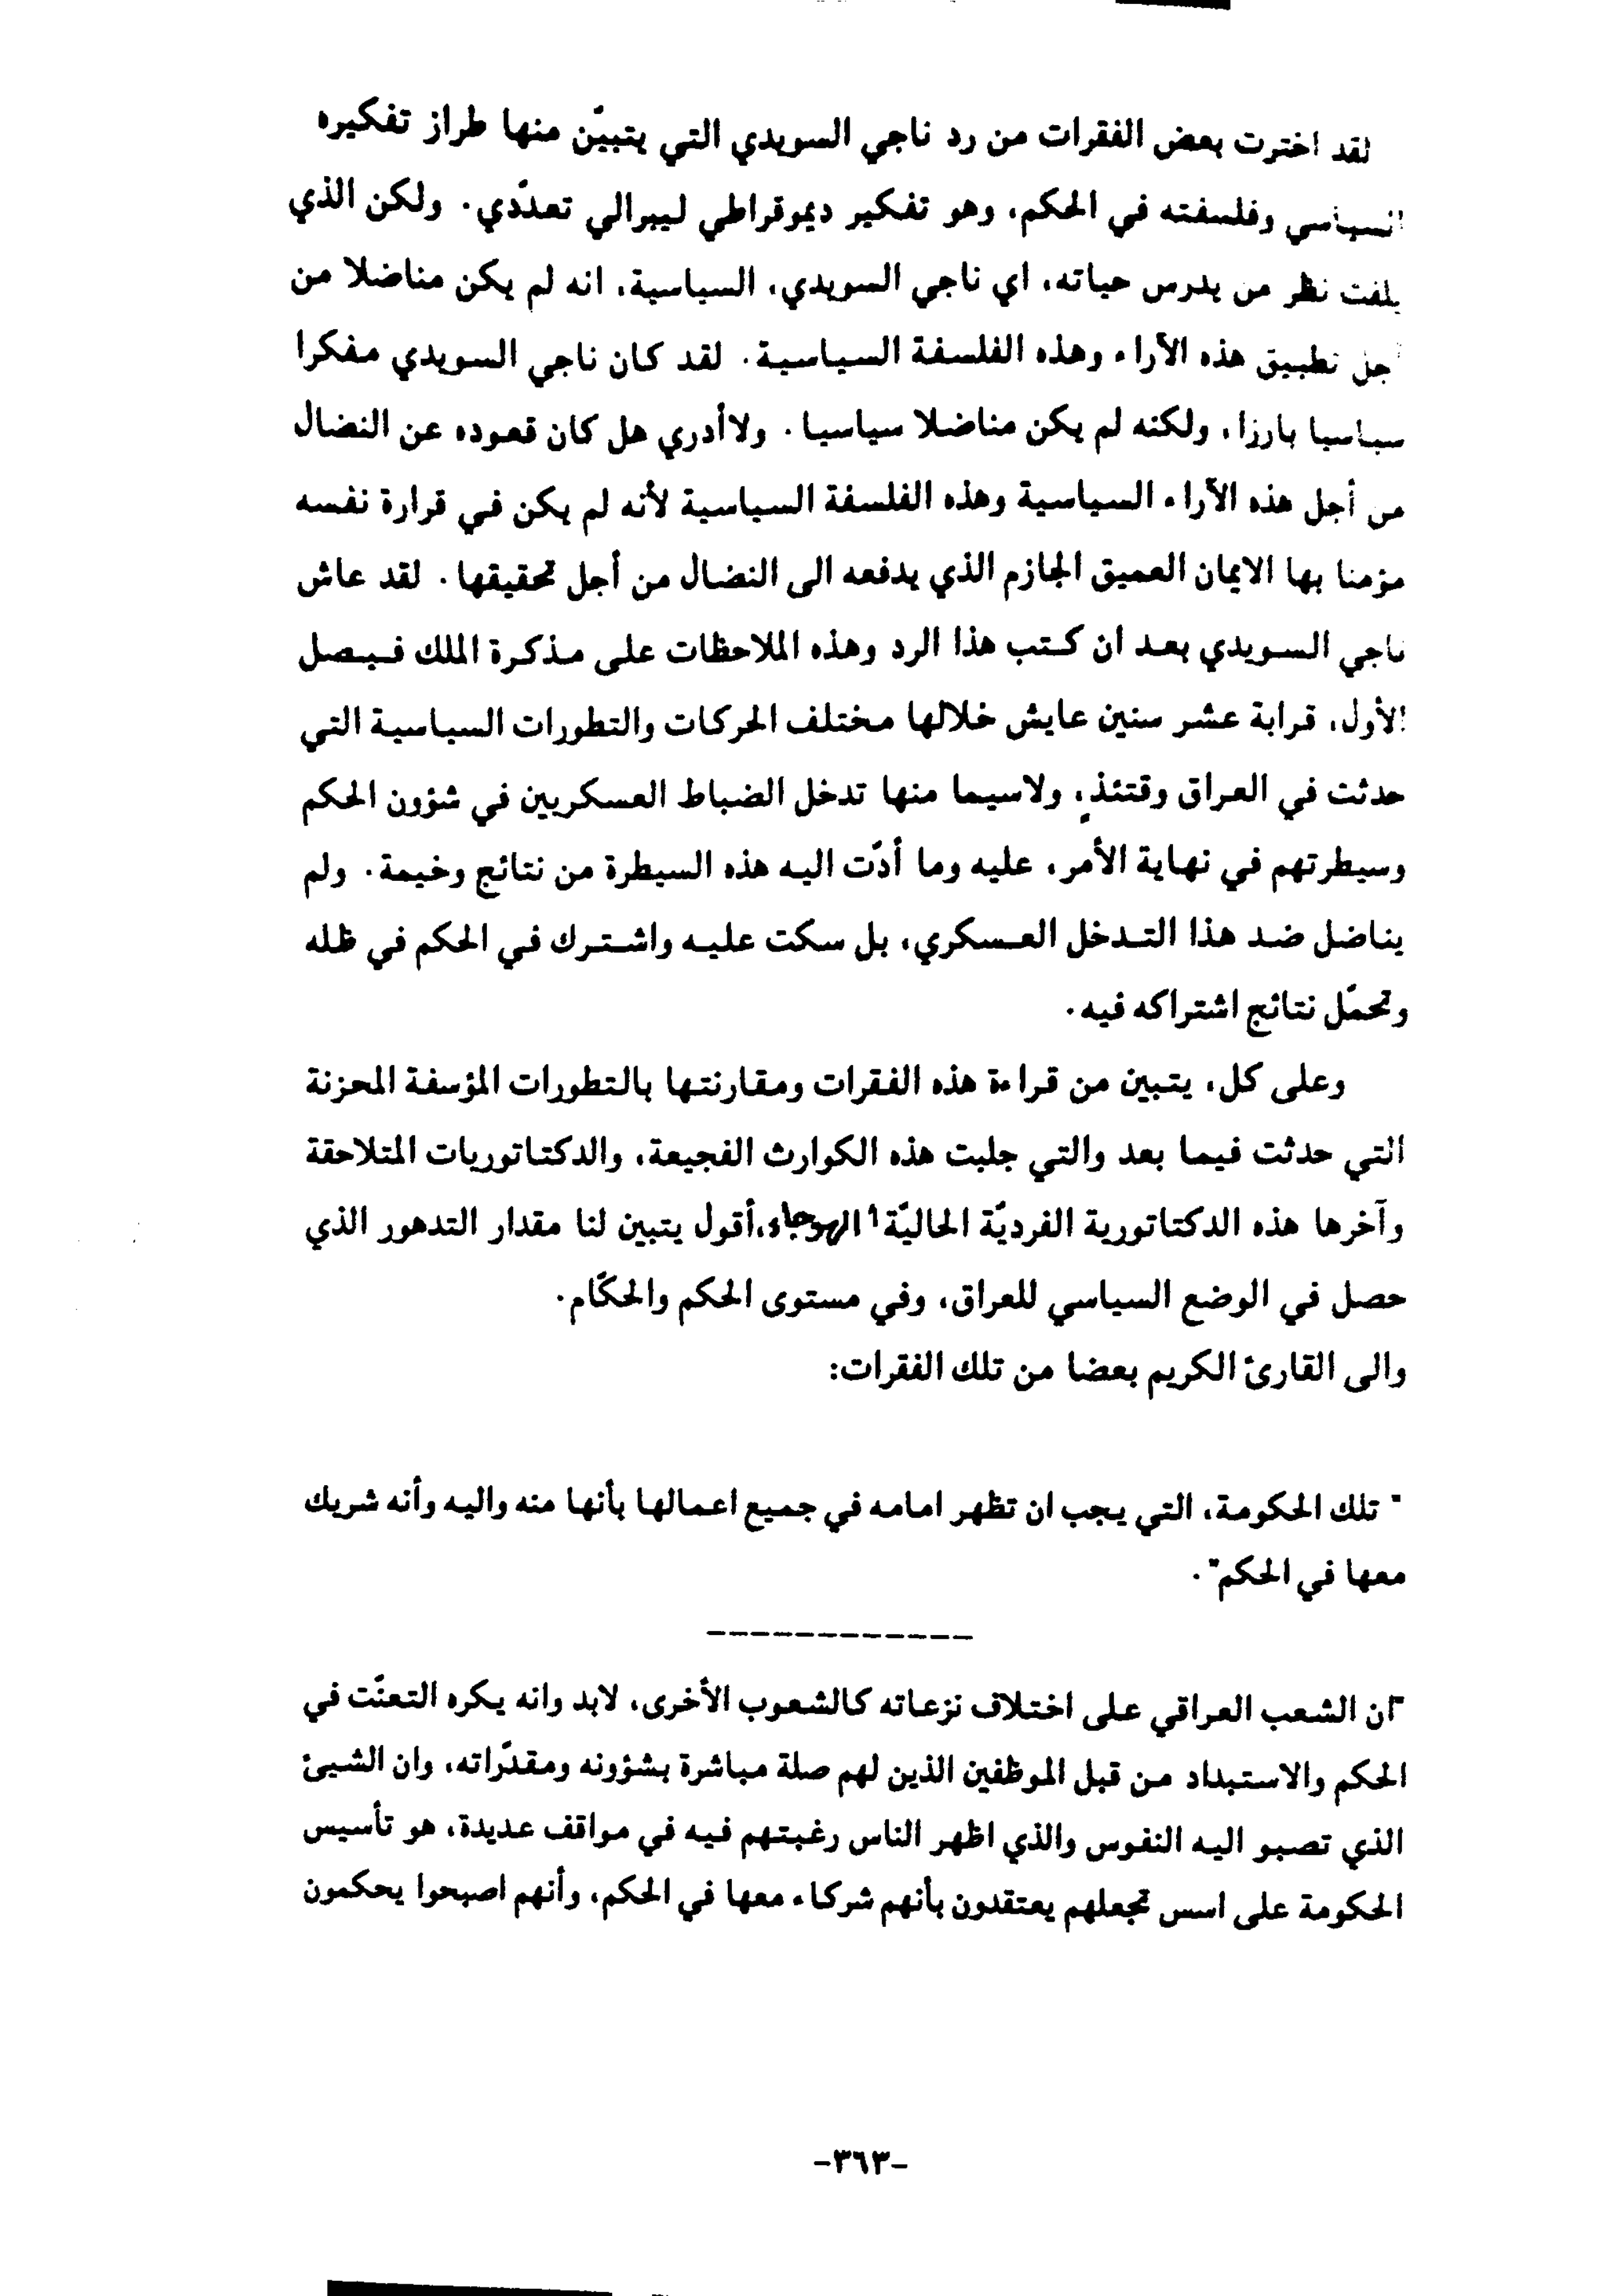 لقد اخترت بعض الفقرات من رد ناجي السويدي التي يتبيّن منها طراز تفكيره
السياسي وفلسفته في الحكم، وهو تفكير ديموقراطي ليبرالي تعدّدي. ولكن الذي
يلفت نظر من يدرس حياته، اي ناجي السويدي، السياسية، انه لم يكن مناضلا من
أجل تطبيق هذه الآراء وهذه الفلسفة السياسية. لقد كان ناجي السويدي مفكرا
سياسيا بارزا، ولكنه لم يكن مناضلا سياسيا. ولاأدري هل كان قعوده عن النضال
من أجل هذه الآراء السياسية وهذه الفلسفة السياسية لأنه لم يكن في قرارة نفسه
مؤمنا بها الايمان العميق الجازم الذي يدفعه الى النضال من أجل تحقيقها. لقد عاش
ناجي السويدي بعد ان كتب هذا الرد وهذه الملاحظات على مذكرة الملك فيصل
الأول، قرابة عشر سنين عايش خلالها مختلف الحركات والتطورات السياسية التي
حدثت في العراق وقتئذٍ، ولاسيما منها تدخل الضباط العسكريين في شؤون الحكم
وسيطرتهم في نهاية الأمر، عليه وما أدّت اليه هذه السيطرة من نتائج وخيمة. ولم
يناضل ضد هذا التدخل العسكري، بل سكت عليه واشترك في الحكم في ظله
وتحمّل نتائج اشتراكه فيه.
وعلى كل، يتبين من قراءة هذه الفقرات ومقارنتها بالتطورات المؤسفة المحزنة
التي حدثت فيما بعد والتي جلبت هذه الكوارث الفجيعة، والدكتاتوريات المتلاحقة
وآخرها هذه الدكتاتورية الفرديّة الحاليّة١ الهوجاء،أقول يتبين لنا مقدار التدهور الذي
حصل في الوضع السياسي للعراق، وفي مستوى الحكم والحكّام.
والى القارئ الكريم بعضا من تلك الفقرات:
" تلك الحكومة، التي يجب ان تظهر امامه في جميع اعمالها بأنها منه واليه وأنه شريك
معها في الحكم".
------------
"ان الشعب العراقي على اختلاف نزعاته كالشعوب الأخرى، لابد وانه يكره التعنّت في
الحكم والاستبداد من قبل الموظفين الذين لهم صلة مباشرة بشؤونه ومقدّراته، وان الشيئ
الذي تصبو اليه النفوس والذي اظهر الناس رغبتهم فيه في مواقف عديدة، هو تأسيس
الحكومة على اسس تجعلهم يعتقدون بأنهم شركاء معها في الحكم، وأنهم اصبحوا يحكمون
-٣٦٣-